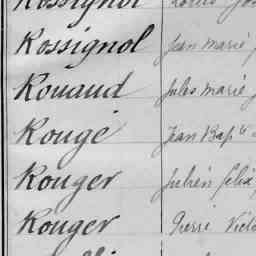 Rossignol Louis
Rossignol Jean Marie
Rouaud Jules Marie
Rougé Jean Bapte
Rouger Julien Félix
Rouger Pierre Victo